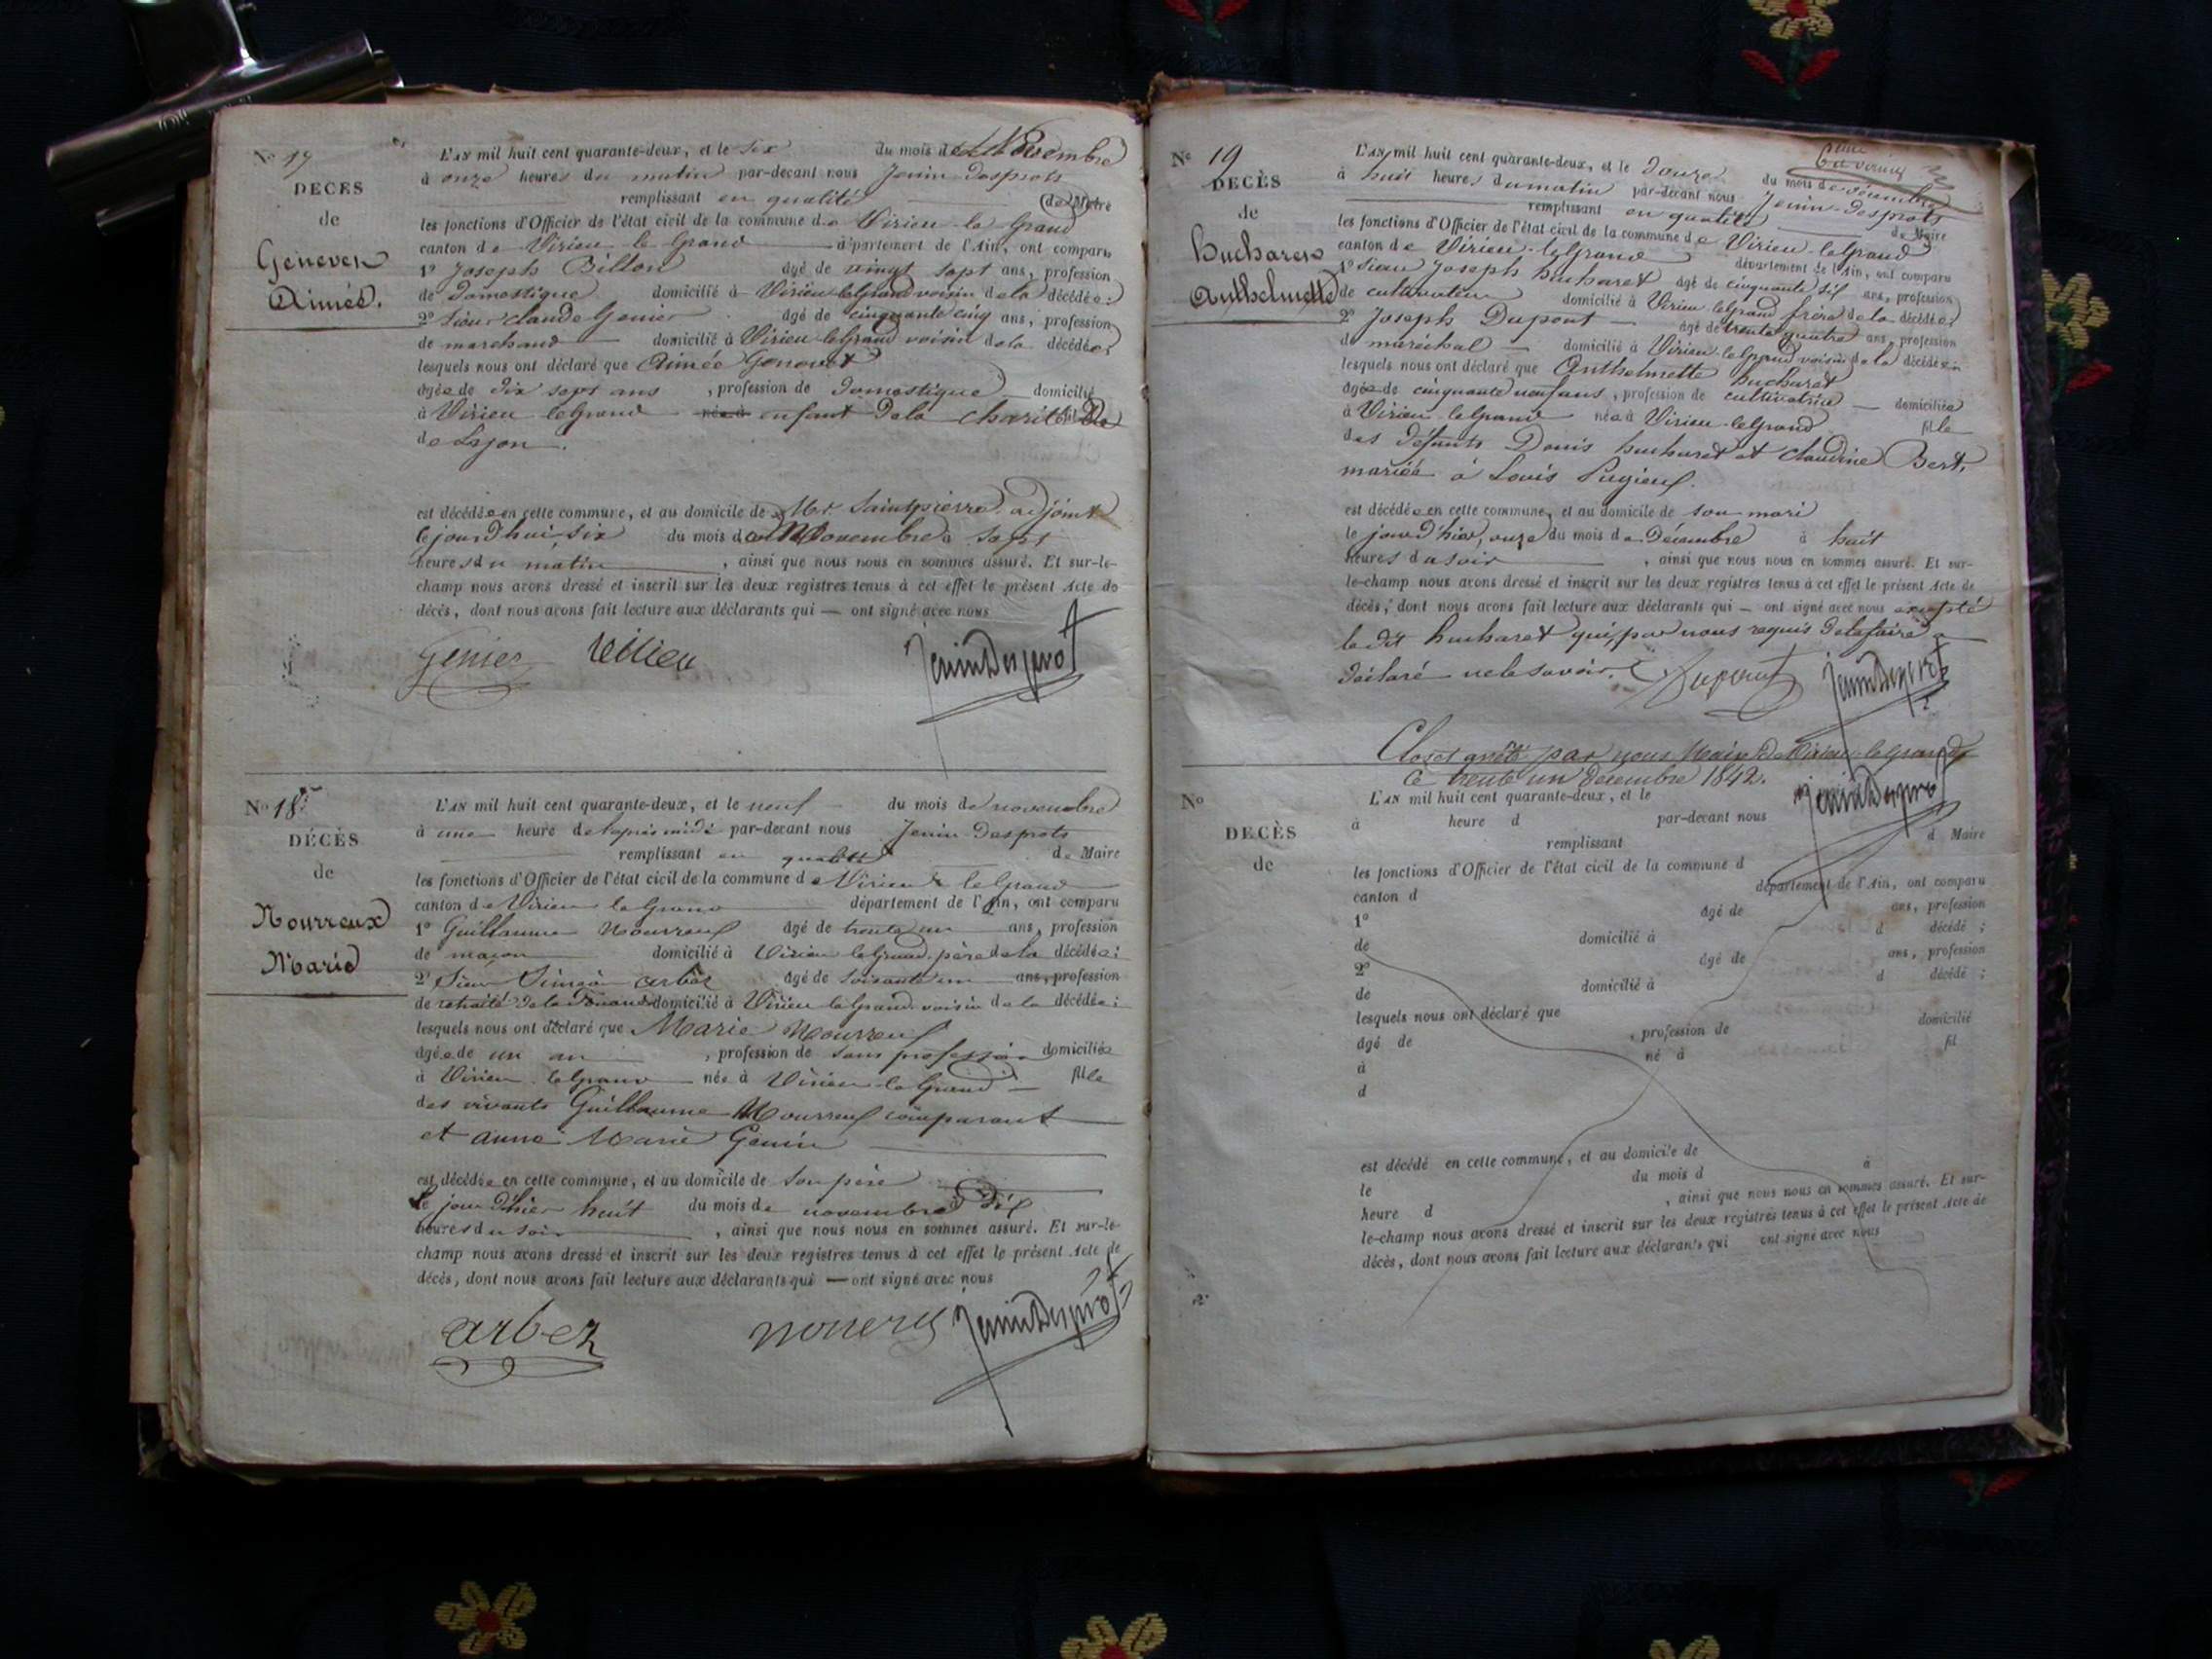 No 17
DECES
de
Genevex
Aimée.
L'AN mil huit cent quarante-deux, et le Six du mois de Novembre
à onze heures du matin par-devant nous Jenin Desprots
remplissant en qualité de Maire
les fonctions d'Officier de l'état civil de la commune de Virieu-le Grand
canton de Virieu le Grand département de l'Ain, ont comparu
1º Joseph Billon âgé de vingt sept ans, profession
de Domestique domicilié à Virieu leGrand voisin de la décédée;
2º Sieur claude Genier âgé de cinquante cinq ans, profession
de marchand domicilié à Virieu leGrand voisin de la décédée;
lesquels nous ont déclaré que Aimée Genevet
agée de dix sept ans , profession de Domestique domicilié
à Virieu leGrand née à enfant de la charité
de Lyon.
est décédée en cette commune, et au domicile de Mr. Saintpierre adjoint
le jourd'hui six du mois de Novembre à Sept
heures du matin , ainsi que nous nous en sommes assuré. Et sur-le-
champ nous avons dressé et inscrit sur les deux registres tenus à cet effet le présent Acte de
décès, dont nous avons fait lecture aux déclarants qui — ont signé avec nous
Genier JeninDesprot
No 18
DÉCÈS
de
Nourreux
Marie
L'AN mil huit cent quarante-deux, et le neuf du mois de novembre
à une heure de l'après midi par-devant nous Jenin Desprots
remplissant en qualité de Maire
les fonctions d'Officier de l'état civil de la commune de Virieu le Grand
canton de Virieu le Grand département de l'Ain, ont comparu
1º Guillaume Nourreux âgé de trente un ans, profession
de maçon domicilié à Virieu leGrand père de la décédée;
2º Sieur Siméon arbez âgé de soixante un ans, profession
de retraité de la Douane domicilié à Virieu leGrand voisin de la décédée;
lesquels nous ont déclaré que Marie Nourreux
âgée de un an , profession de sans profession domiciliée
à Virieu leGrand née à Virieu le Grand fille
des vivants Guillaume Nourreux comparant
et anne Marie Genin
est décédée en cette commune, et au domicile de son père
le jour d'hier huit du mois de novembre à dix
heures du soir , ainsi que nous nous en sommes assuré. Et sur-le-
champ nous avons dressé et inscrit sur les deux registres tenus à cet effet le présent Acte de
décès, dont nous avons fait lecture aux déclarants qui — ont signé avec nous
arbez JeninDesprot
No 19
DECÈS
de
hucharet
Anthelmette
L'AN mil huit cent quarante-deux, et le Douze du mois de décembre
à huit heures du matin par-devant nous Jenin-Desprots
remplissant en qualité de Maire
les fonctions d'Officier de l'état civil de la commune de Virieu-leGrand
canton de Virieu-leGrand département de l'Ain, ont comparu
1º Sieur Joseph hucharet âgé de cinquante six ans, profession
de cultivateur domicilié à Virieu leGrand frère de la décédée;
2º Joseph Dupont âgé de trente quatre ans, profession
de maréchal domicilié à Virieu leGrand voisin de la décédée;
lesquels nous ont déclaré que Anthelmette hucharet
agée de cinquante neuf ans, profession de cultivatrice domiciliée
à Virieu-leGrand née à Virieu-leGrand fille
des défunts Denis hucharet et Claudine Bert,
mariée à Louis Pugieux.
est décédée en cette commune, et au domicile de son mari
le jour d'hier, onze du mois de Décembre à huit
heures du soir , ainsi que nous nous en sommes assuré. Et sur-
le-champ nous avons dressé et inscrit sur les deux registres tenus à cet effet le présent Acte de
décès, dont nous avons fait lecture aux déclarants qui — ont signé avec nous excepté
le dit hucharet qui par nous requis de le faire a
déclaré ne le savoir. Dupont JeninDesprot
Clos et arrêté par nous Maire de Virieu le grand
ce trente un Décembre 1842.
JeninDesprot
No
DECÈS
de
L'AN mil huit cent quarante-deux, et le
à heure d par-devant nous
remplissant d Maire
les fonctions d'Officier de l'état civil de la commune d
canton d département de l'Ain, ont comparu
1º âgé de ans, profession
de domicilié à d décédé ;
2º âgé de ans, profession
de domicilié à d décédé ;
lesquels nous ont déclaré que
âgé de , profession de domicilié
à né à fil
d
est décédé en cette commune, et au domicile de
le du mois d à
heure d , ainsi que nous nous en sommes assuré. Et sur-
le-champ nous avons dressé et inscrit sur les deux registres tenus à cet effet le présent Acte de
décès, dont nous avons fait lecture aux déclarants qui ont signé avec nous